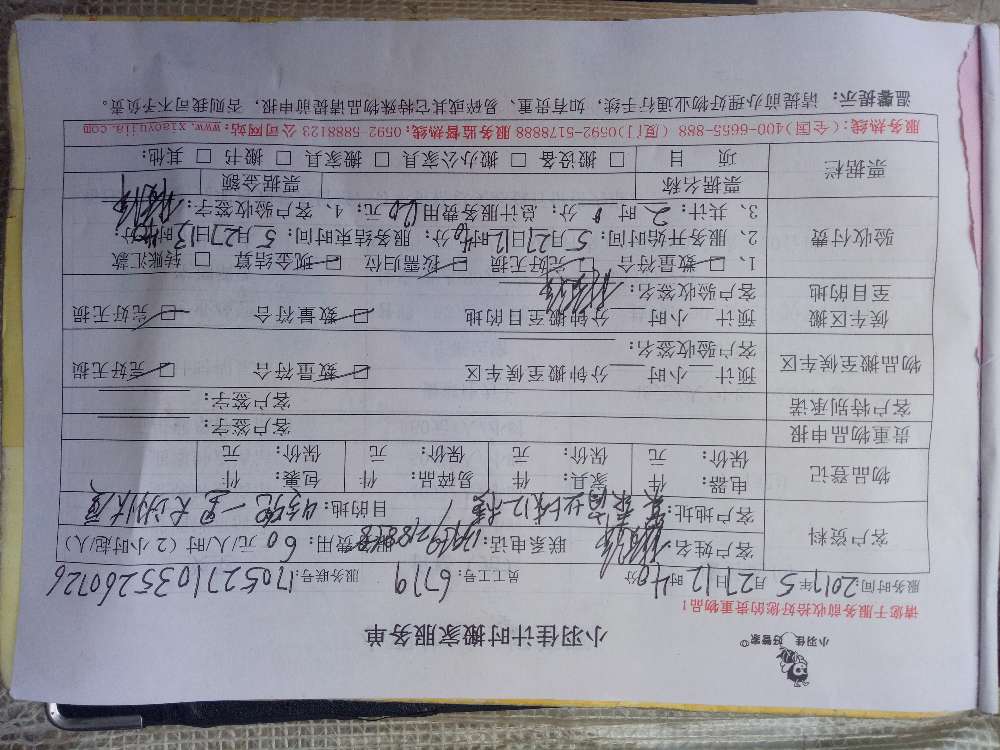 小羽佳 好管家
小羽佳计时搬家服务单
请您于服务前收拾好您的贵重物品！
服务时间：2017年5月27日12时40分 员工工号：6719 服务联号：1705271035260726
客户资料 客户姓名： 联系电话： 服务费用：60元/人/时（2小时/人/起）
客户地址： 目的地：
物品登记 电器： 件 家具： 件 易碎品 件 包裹： 件
保价： 元 保价： 元 保价： 元 保价： 元
贵重物品申报 客户签字：
客户特别承诺 客户签字：
物品搬至候车区 预计 小时 分钟搬至候车区 数量符合 完好无损
客户验收签名：
候车区搬至目的地 预计 小时 分钟搬至目的地 数量符合 完好无损
客户验收签名：
验收付费 1、 数量符合 完好无损 按需归位 现金结算 转账汇款
2、服务开始时间：5月27日12时40分；服务结束时间：5月27日13时 分
3、共计：2时0分；总计服务费用：120元；4、客户验收签字：
票据栏 票据名称 票据金额
项 目 搬设备 搬办公家具 搬家具 搬书 其他：
服务热线：（全国）400-6655-888（厦门）0592-5178888 服务监督热线：0592 5888123 公司网站：www.xiaoyujia.com
温馨提示：请提前办理好物业通行手续，如有贵重、易碎或其它特殊物品请提前申报，否则我司不予负责。